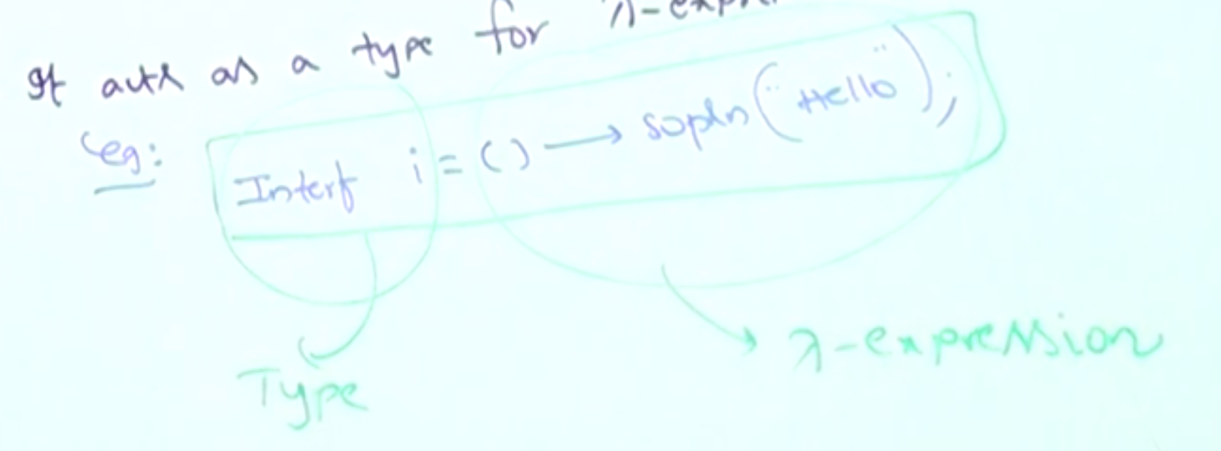 It acts as a type for λ-expr
eg:
Interf i = () → sopln("Hello");
Type
λ-expression